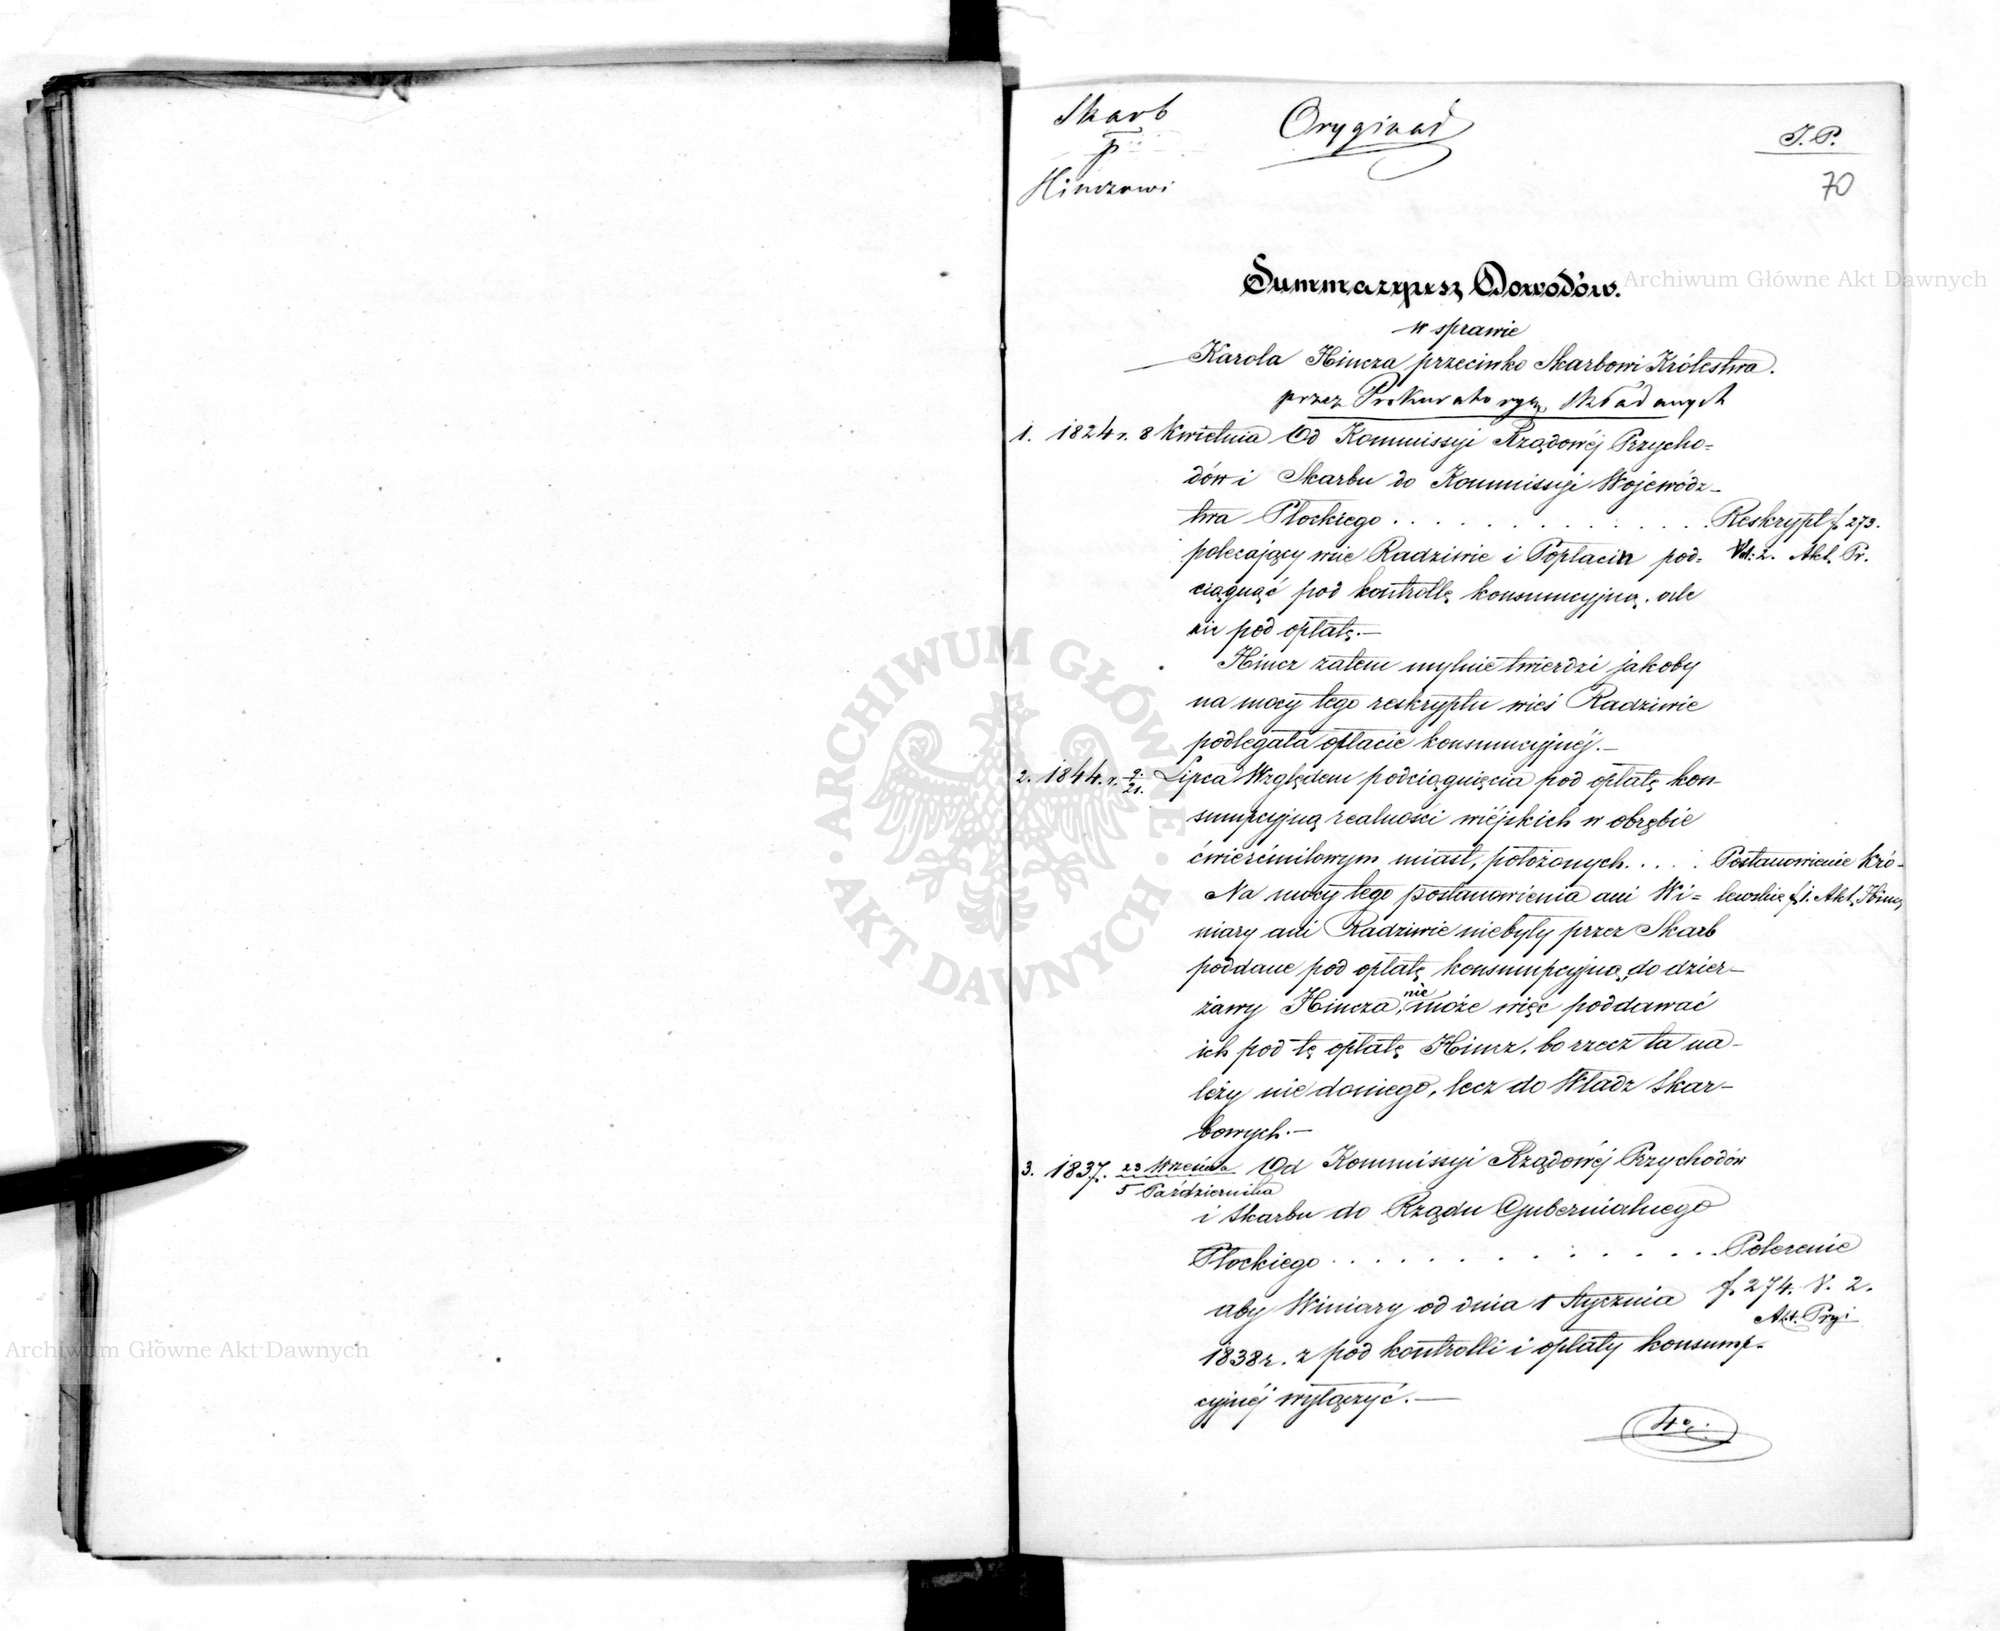 Skarb
p
Hinczowi
Oryginał
I. P.
70
Summaryusz Dowodów.
w sprawie
Karola Hincza przeciwko Skarbowi Królestwa.
przez Prokuratoryą składanych
1. 1824 r. 8 Kwietnia Od Kommissyi Rządowéj Przycho=
dów i Skarbu do Kommissyi Wojewódz-
twa Płockiego . . . . . . . . . . . Reskrypt f. 273.
polecający wsie Radziwie i Popłacin pod= Vol: 2. Akt. Pr.
ciągnąć pod kontrollę konsumcyjną, ale
nie pod opłatę.—
Hincz zatem mylnie twierdzi jakoby
na mocy tego reskryptu wieś Radziwie
podlegała opłacie konsumcyjnéj.—
2. 1844. r. 9./21. Lipca Względem podciągnięcia pod opłatę kon-
sumpcyjną realności wiéjskich w obrębie
ćwierćmilowym miast, położonych. . . . . Postanowienie Kró-
Na mocy tego postanowienia ani Wi= lewskie f. 1. Akt. Hincz
niary ani Radziwie niebyły przez Skarb
poddane pod opłatę konsumpcyjną, do dzier-
żawy Hincza, nie może więc poddawać
ich pod tę opłatę Hincz, bo rzecz ta na-
leży nie doniego, lecz do Władz Skar-
bowych.—
3. 1837. 23 Września Od Kommissyi Rządowéj Przychodów
5 Października
i Skarbu do Rządu Gubernialnego
Płockiego . . . . . . . . . . . . Polecenie
f. 274. V. 2.
aby Winiary od dnia 1 Stycznia
Akt. Pryi
1838 r. z pod kontrolli i opłaty konsump-
cyjnéj wyłączyć.—
Archiwum Główne Akt Dawnych
ARCHIWUM GŁÓWNE · AKT DAWNYCH ·
Archiwum Główne Akt Dawnych